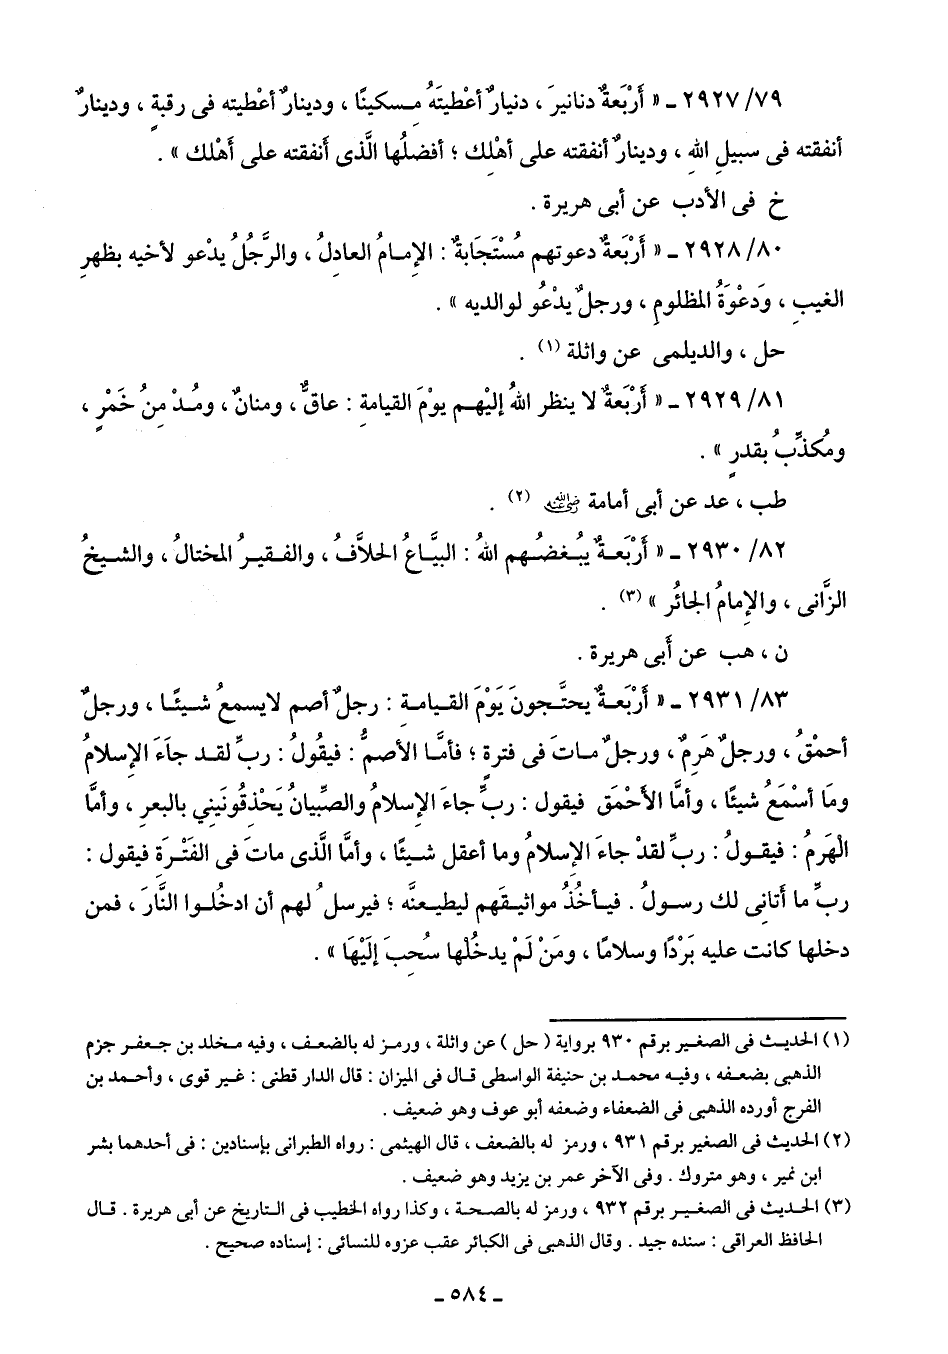 ٢٩٢٧/٧٩ - « أَرْبَعةٌ دنانيرَ ، دنيارٌ أعْطيتَهُ مِسكينًا ، ودينارٌ أعْطيته فى رقبةٍ ، ودينارٌ
أنفقته فى سبيلِ اللهِ ، ودينارٌ أنفقته على أهْلِك ؛ أفضلُها الَّذى أنفقته على أَهْلك » .
خ فى الأدب عن أبى هريرة .
٢٩٢٨/٨٠ - « أَرْبَعةٌ دعوتهم مُسْتَجَابةٌ : الإمامُ العادلُ ، والرَّجلُ يدْعو لأخيه بظهرِ
الغيبِ ، ودَعْوَةُ المظلومِ ، ورجلٌ يدْعُو لوالديه » .
حل ، والديلمى عن واثلة (١) .
٢٩٢٩/٨١ - « أَرْبَعةٌ لا ينظر اللهُ إليْهم يوْمَ القيامةِ : عاقٌّ ، ومنانٌ ، ومُدْمِنُ خَمْرٍ ،
ومُكذِّبُ بقدرٍ » .
طب ، عد عن أبى أمامة رضي الله عنه (٢) .
٢٩٣٠/٨٢ - « أَرْبَعةٌ يبُغضُهم اللهُ : البيَّاعُ الحلاَّفُ ، والفقيرُ المختالُ ، والشيخُ
الزَّانى ، والإمامُ الجائر » (٣) .
ن ، هب عن أَبى هريرة .
٢٩٣١/٨٣ - « أَرْبَعةٌ يحتَّجونَ يَوْمَ القيامةِ : رجلٌ أصم لايسمعُ شيئًا ، ورجلٌ
أحمْقُ ، ورجلٌ هَرِمٌ ، ورجلٌ ماتَ فى فترةٍ ؛ فأمَّا الأصمُّ : فيقُولُ : ربِّ لقد جاَءَ الإسلامُ
ومَا أسْمَعُ شيئًا ، وأمَّا الأحْمَق فيقول : ربِّ جاءَ الإسلامُ والصِّبيانُ يَحْذقُونَنِي بالبعر ، وأمَّا
الْهَرِمُ : فيقولُ : ربِّ لقدْ جاءَ الإسلامُ وما أعقل شيئًا ، وأمَّا الَّذى ماتَ فى الفَتْرَةِ فيقول :
ربِّ ما أَتانِى لك رسولُ . فيأخُذُ مواثيقَهم ليطيعنَّه ؛ فيرسلُ لهم أن ادخُلوا النَّارَ ، فمن
دخلها كانت عليه بَرْدًا وسلامًا ، ومَنْ لَمْ يدخُلْها سُحِبَ إلَيْهَا » .
(١) الحديث فى الصغير برقم ٩٣٠ برواية ( حل ) عن واثلة ، ورمز له بالضعف ، وفيه مخلد بن جعفر جزم
الذهبى بضعفه ، وفيه محمد بن حنيفة الواسطى قال فى الميزان : قال الدار قطنى : غير قوى ، وأحمد بن
الفرج أورده الذهبى فى الضعفاء وضعفه أبو عوف وهو ضعيف .
(٢) الحديث فى الصغير برقم ٩٣١ ، ورمز له بالضعف ، قال الهيثمى : رواه الطبرانى بإسنادين : فى أحدهما بشر
ابن نمير ، وهو متروك . وفى الآخر عمر بن يزيد وهو ضعيف .
(٣) الحديث فى الصغير برقم ٩٣٢ ، ورمز له بالصحة ، وكذا رواه الخطيب فى التاريخ عن أبى هريرة . قال
الحافظ العراقى : سنده جيد . وقال الذهبى فى الكبائر عقب عزوه للنسائى : إسناده صحيح .
- ٥٨٤ -